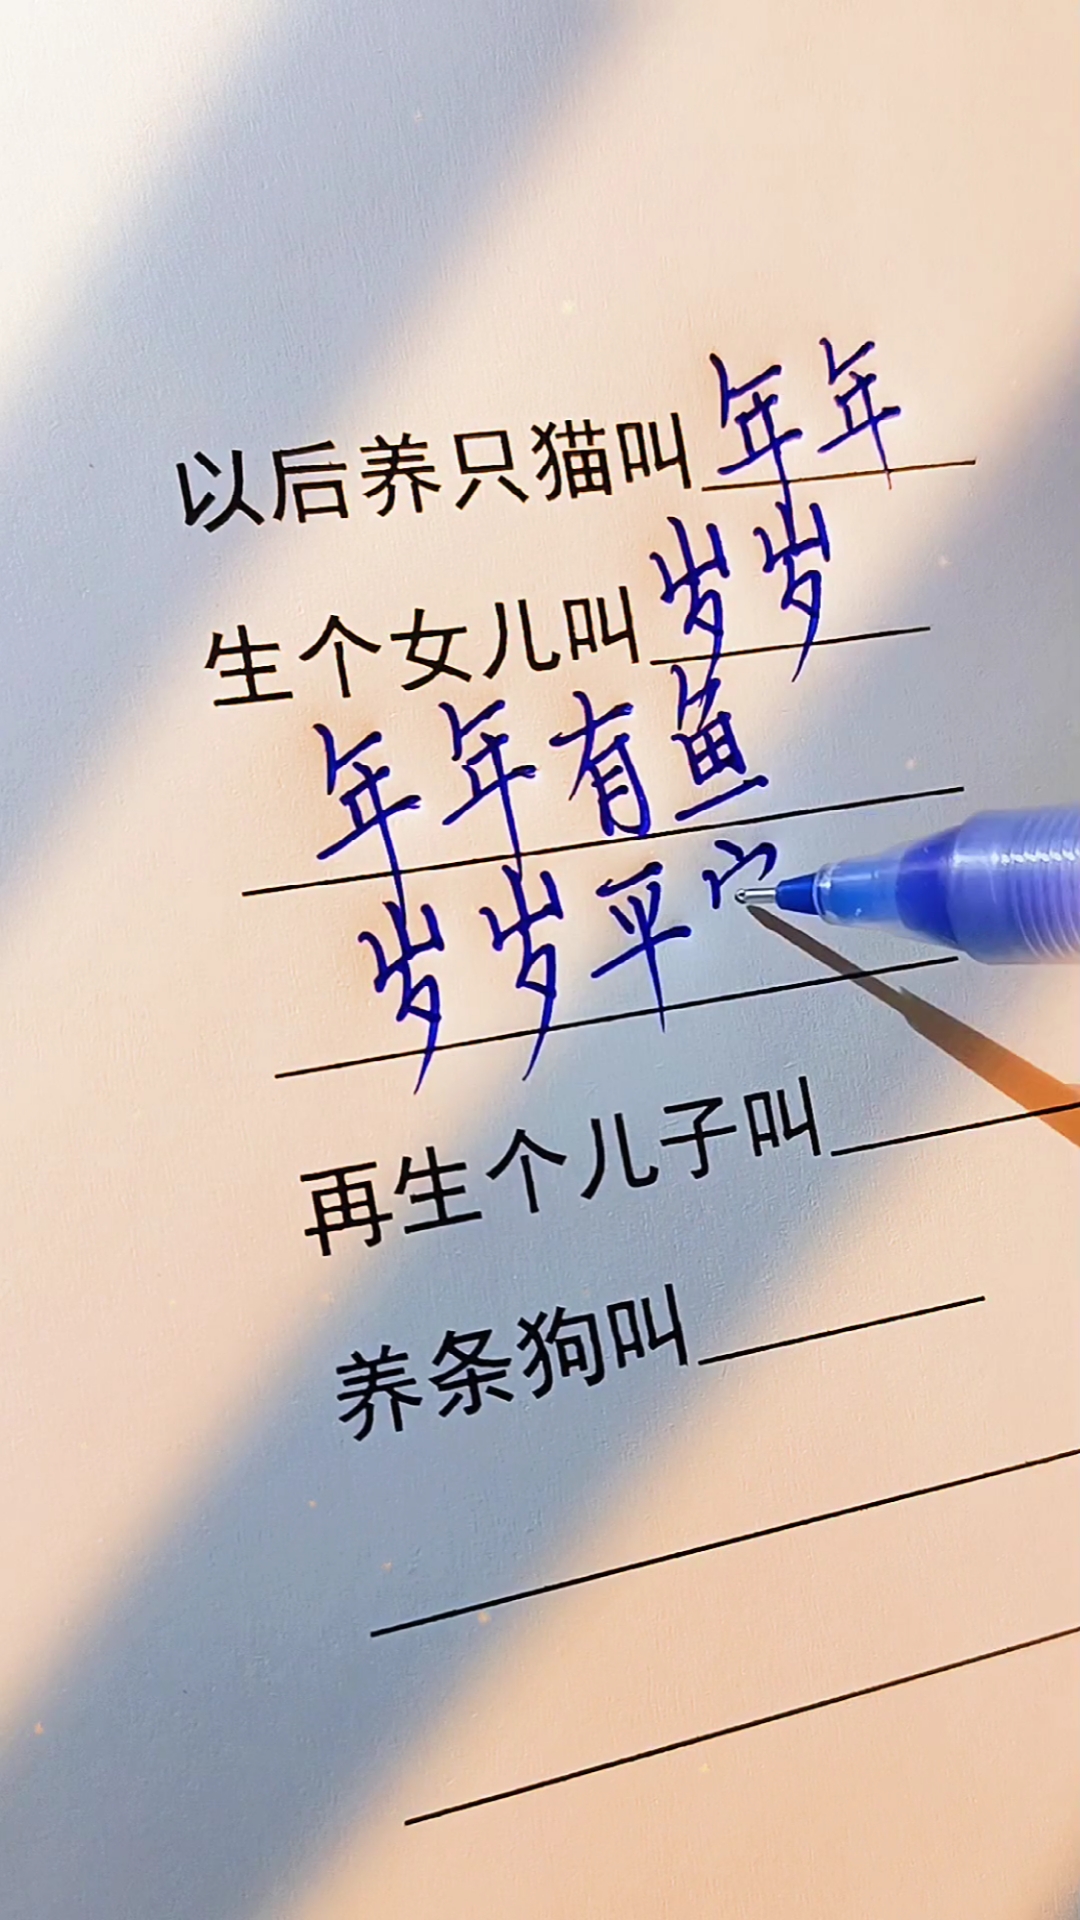 以后养只猫叫年年
生个女儿叫岁岁
年年有鱼
岁岁平宀
再生个儿子叫
养条狗叫